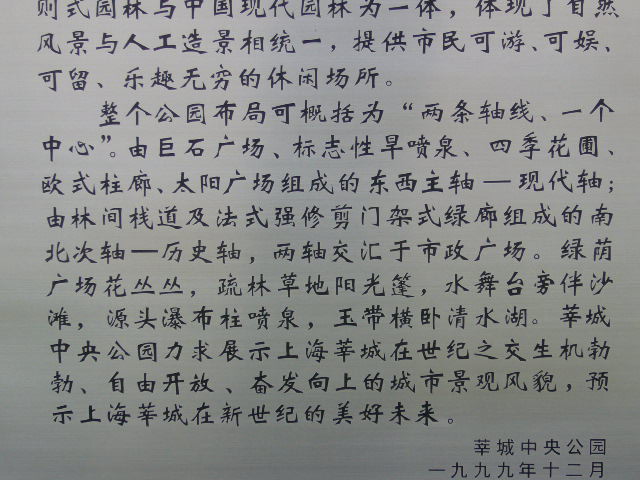 则式园林与中国现代园林为一体，体现了自然
风景与人工造景相统一，提供市民可游、可娱、
可留、乐趣无穷的休闲场所。
整个公园布局可概括为“两条轴线、一个
中心”。由巨石广场、标志性旱喷泉、四季花圃、
欧式柱廊、太阳广场组成的东西主轴—现代轴；
由林间栈道及法式强修剪门架式绿廊组成的南
北次轴—历史轴，两轴交汇于市政广场。绿荫
广场花丛丛，疏林草地阳光篷，水舞台旁伴沙
滩，源头瀑布柱喷泉，玉带横卧清水湖。莘城
中央公园力求展示上海莘城在世纪之交生机勃
勃、自由开放、奋发向上的城市景观风貌，预
示上海莘城在新世纪的美好未来。
莘城中央公园
一九九九年十二月